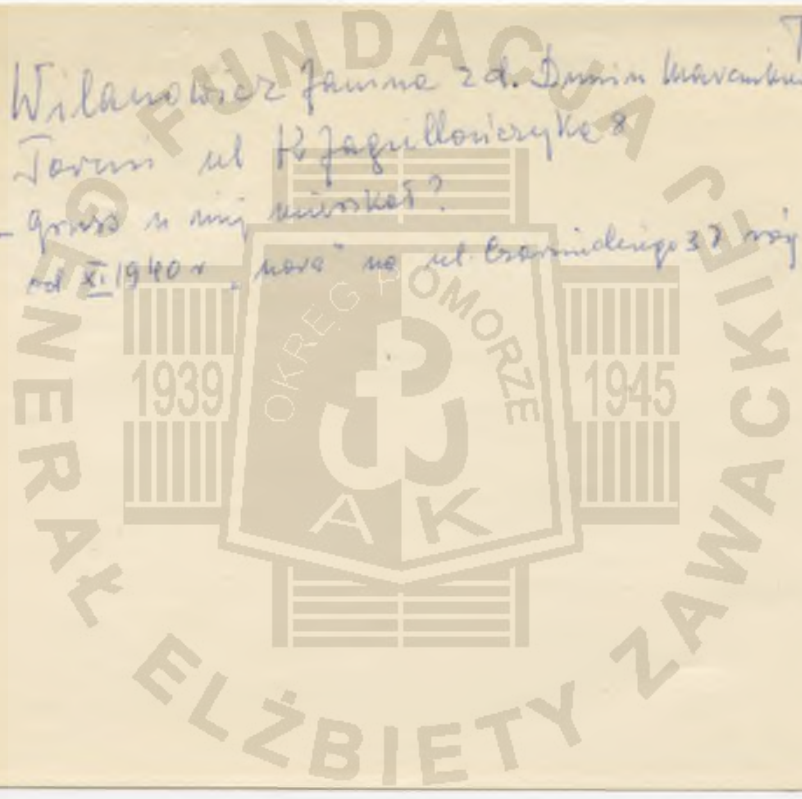 T
Wilanowicz Janina z d. Dunin
Toruń ul K Jagiellończyka 8
- Gruss u niej mieszkał?
od XI 1940 r „nora" na ul. Czarnieckiego 37 róg
FUNDACJA GENERAŁ ELŻBIETY ZAWACKIEJ
OKRĘG POMORZE
1939
1945
AK